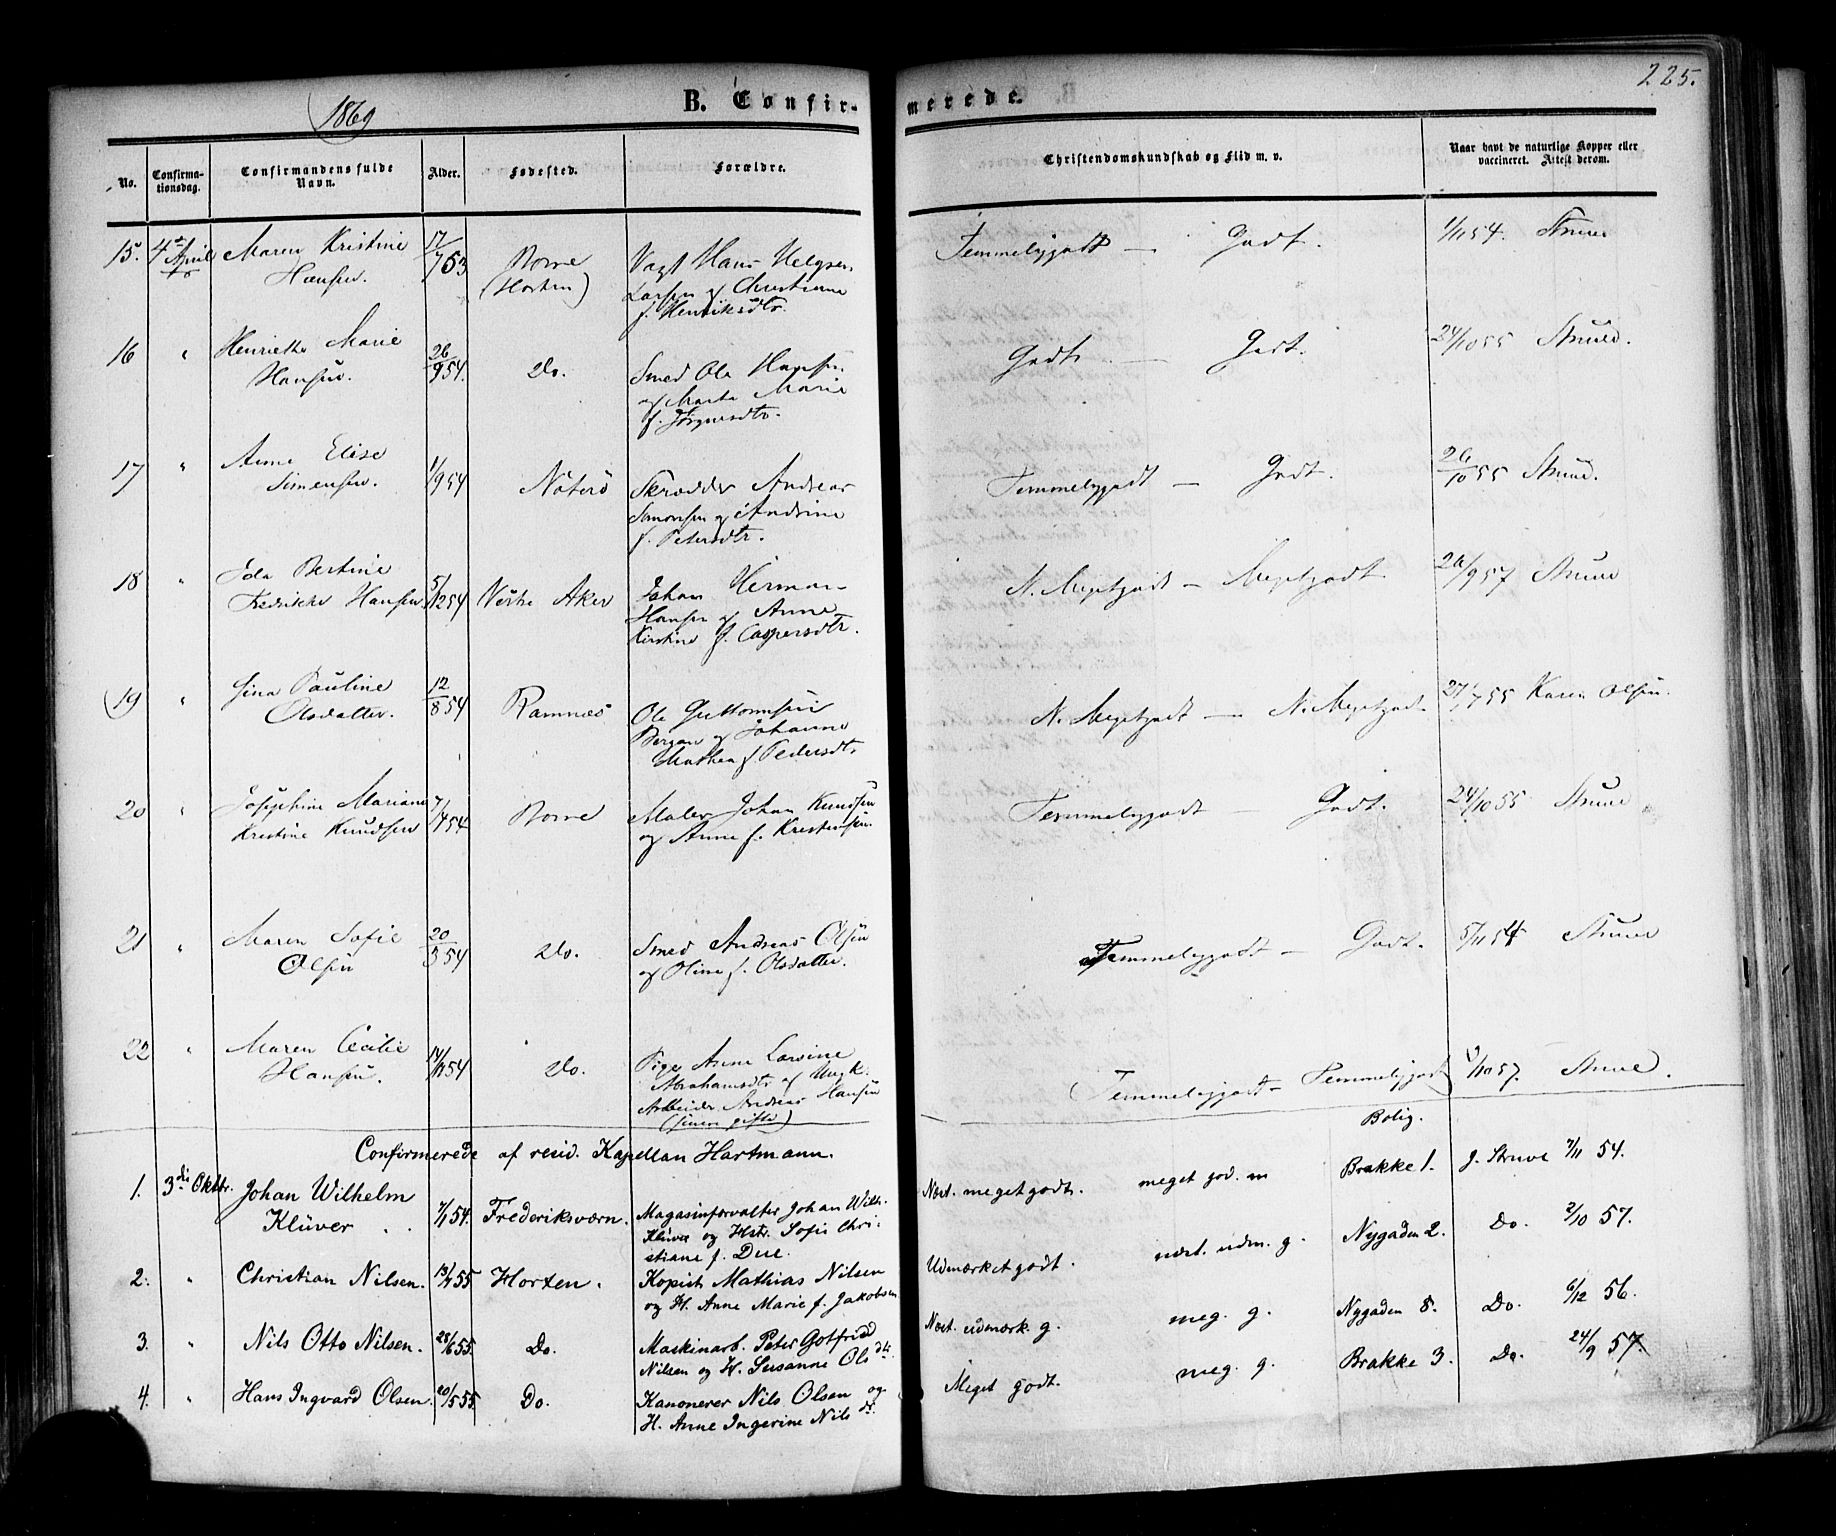 1869
B. Confir-
merede.
225.
No.
Confirma-
tionsdag.
Confirmandens fulde
Navn.
Alder.
Fødested.
Forældre.
Christendomskundskab og Flid m. v.
Naar havt de naturlige Kopper eller
vaccineret. Attest derom.
15. 4de April Maren Kristine 17/7 53 Borre Vagt Hans Helgsen Temmeliggodt — Godt. 1/11 54. Struve
Hansen (Horten) Larsen og Christiane
f. Henriksdtr.
16 " Henriette Marie 26/9 54. Do. Smed Ole Hansen Godt — Godt. 24/10 55 Struve.
Hansen. og Marte Marie
f. Jörgensdtr.
17 " Anne Elise 1/9 54 Nöterö Skrædder Andreas Temmeliggodt — Godt. 26/10 55 Struve.
Simensen. Simonsen og Andrine
f. Petersdtr.
18 " Ida Bertine 5/12 54 Vestre Aker Johan Herman N. Megetgodt — Megetgodt 26/9 57 Struve
Fredrikke Hansen Hansen og Anne
Kirstine f. Caspersdtr.
19 " Gina Pauline 12/8 54 Ramnæs Ole Guttormsen N. Megetgodt — N. Megetgodt 27/7 55 Karen Olsen.
Olsdatter. Bergan og Johanne
Mathea f. Pedersdtr.
20 " Josephine Mariane 7/7 54 Borre Maler Johan Knudsen Temmeliggodt — Godt. 24/10 55 Struve
Kristine Knudsen og Anne f. Kristensen.
21 " Maren Sofie 20/3 54 Do. Smed Andreas Olsen Temmeliggodt — Godt. 5/11 54 Struve
Olsen og Oline f. Olsdatter.
22 " Maren Cecilie 14/11 54 Do. Pige Anne Larsine Temmeliggodt — Temmeliggodt /10 57. Struve.
Hansen. Abrahamsdtr og Ungk.
Arbeider Andreas Hansen
(siden gifte)
Bolig.
Confirmerede af resid. Kapellan Hartmann.
1. 3die Oktbr. Johan Wilhelm 7/1 54. Frederiksværn. Magasinforvalter Johan Wilh. Næst. megetgodt. meget god. m Brakke 1. J. Struve 7/11 54.
Klüver Klüver og Hstr. Sofie Chri-
stiane f. Due.
2. " Christian Nilsen. 13/7 55 Horten. Kopist Mathias Nilsen Udmærket godt. næst. udm. g. Nygaden 2. Do. 2/10 57.
og H. Anne Marie f. Jakobsen
3. " Nils Otto Nilsen. 28/6 55. Do. Maskinarb. Peter Gotfried Næst. udmærk. g. meg. g. Nygaden 8. Do. 6/12 56.
Nilsen og H. Susanne Ols dtr.
4. " Hans Ingvard Olsen. 20/5 55. Do. Kanonerer Nils Olsen og Meget godt. meg. g. Brakke 3. Do. 24/9 57.
H. Anne Ingerine Nils dt.